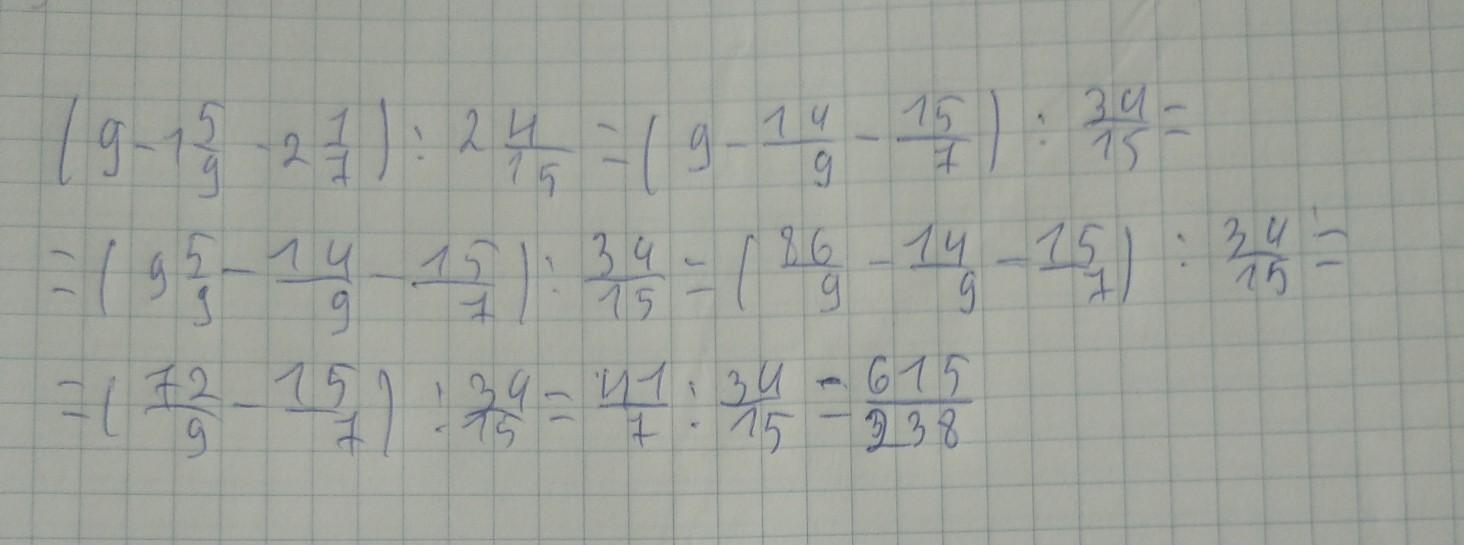 (9 - 1 5/9 - 2 1/7) : 2 4/15 = (9 - 14/9 - 15/7) : 34/15 =
= (9 5/9 - 14/9 - 15/7) : 34/15 = (86/9 - 14/9 - 15/7) : 34/15 =
= (72/9 - 15/7) : 34/15 = 41/7 : 34/15 = 615/238